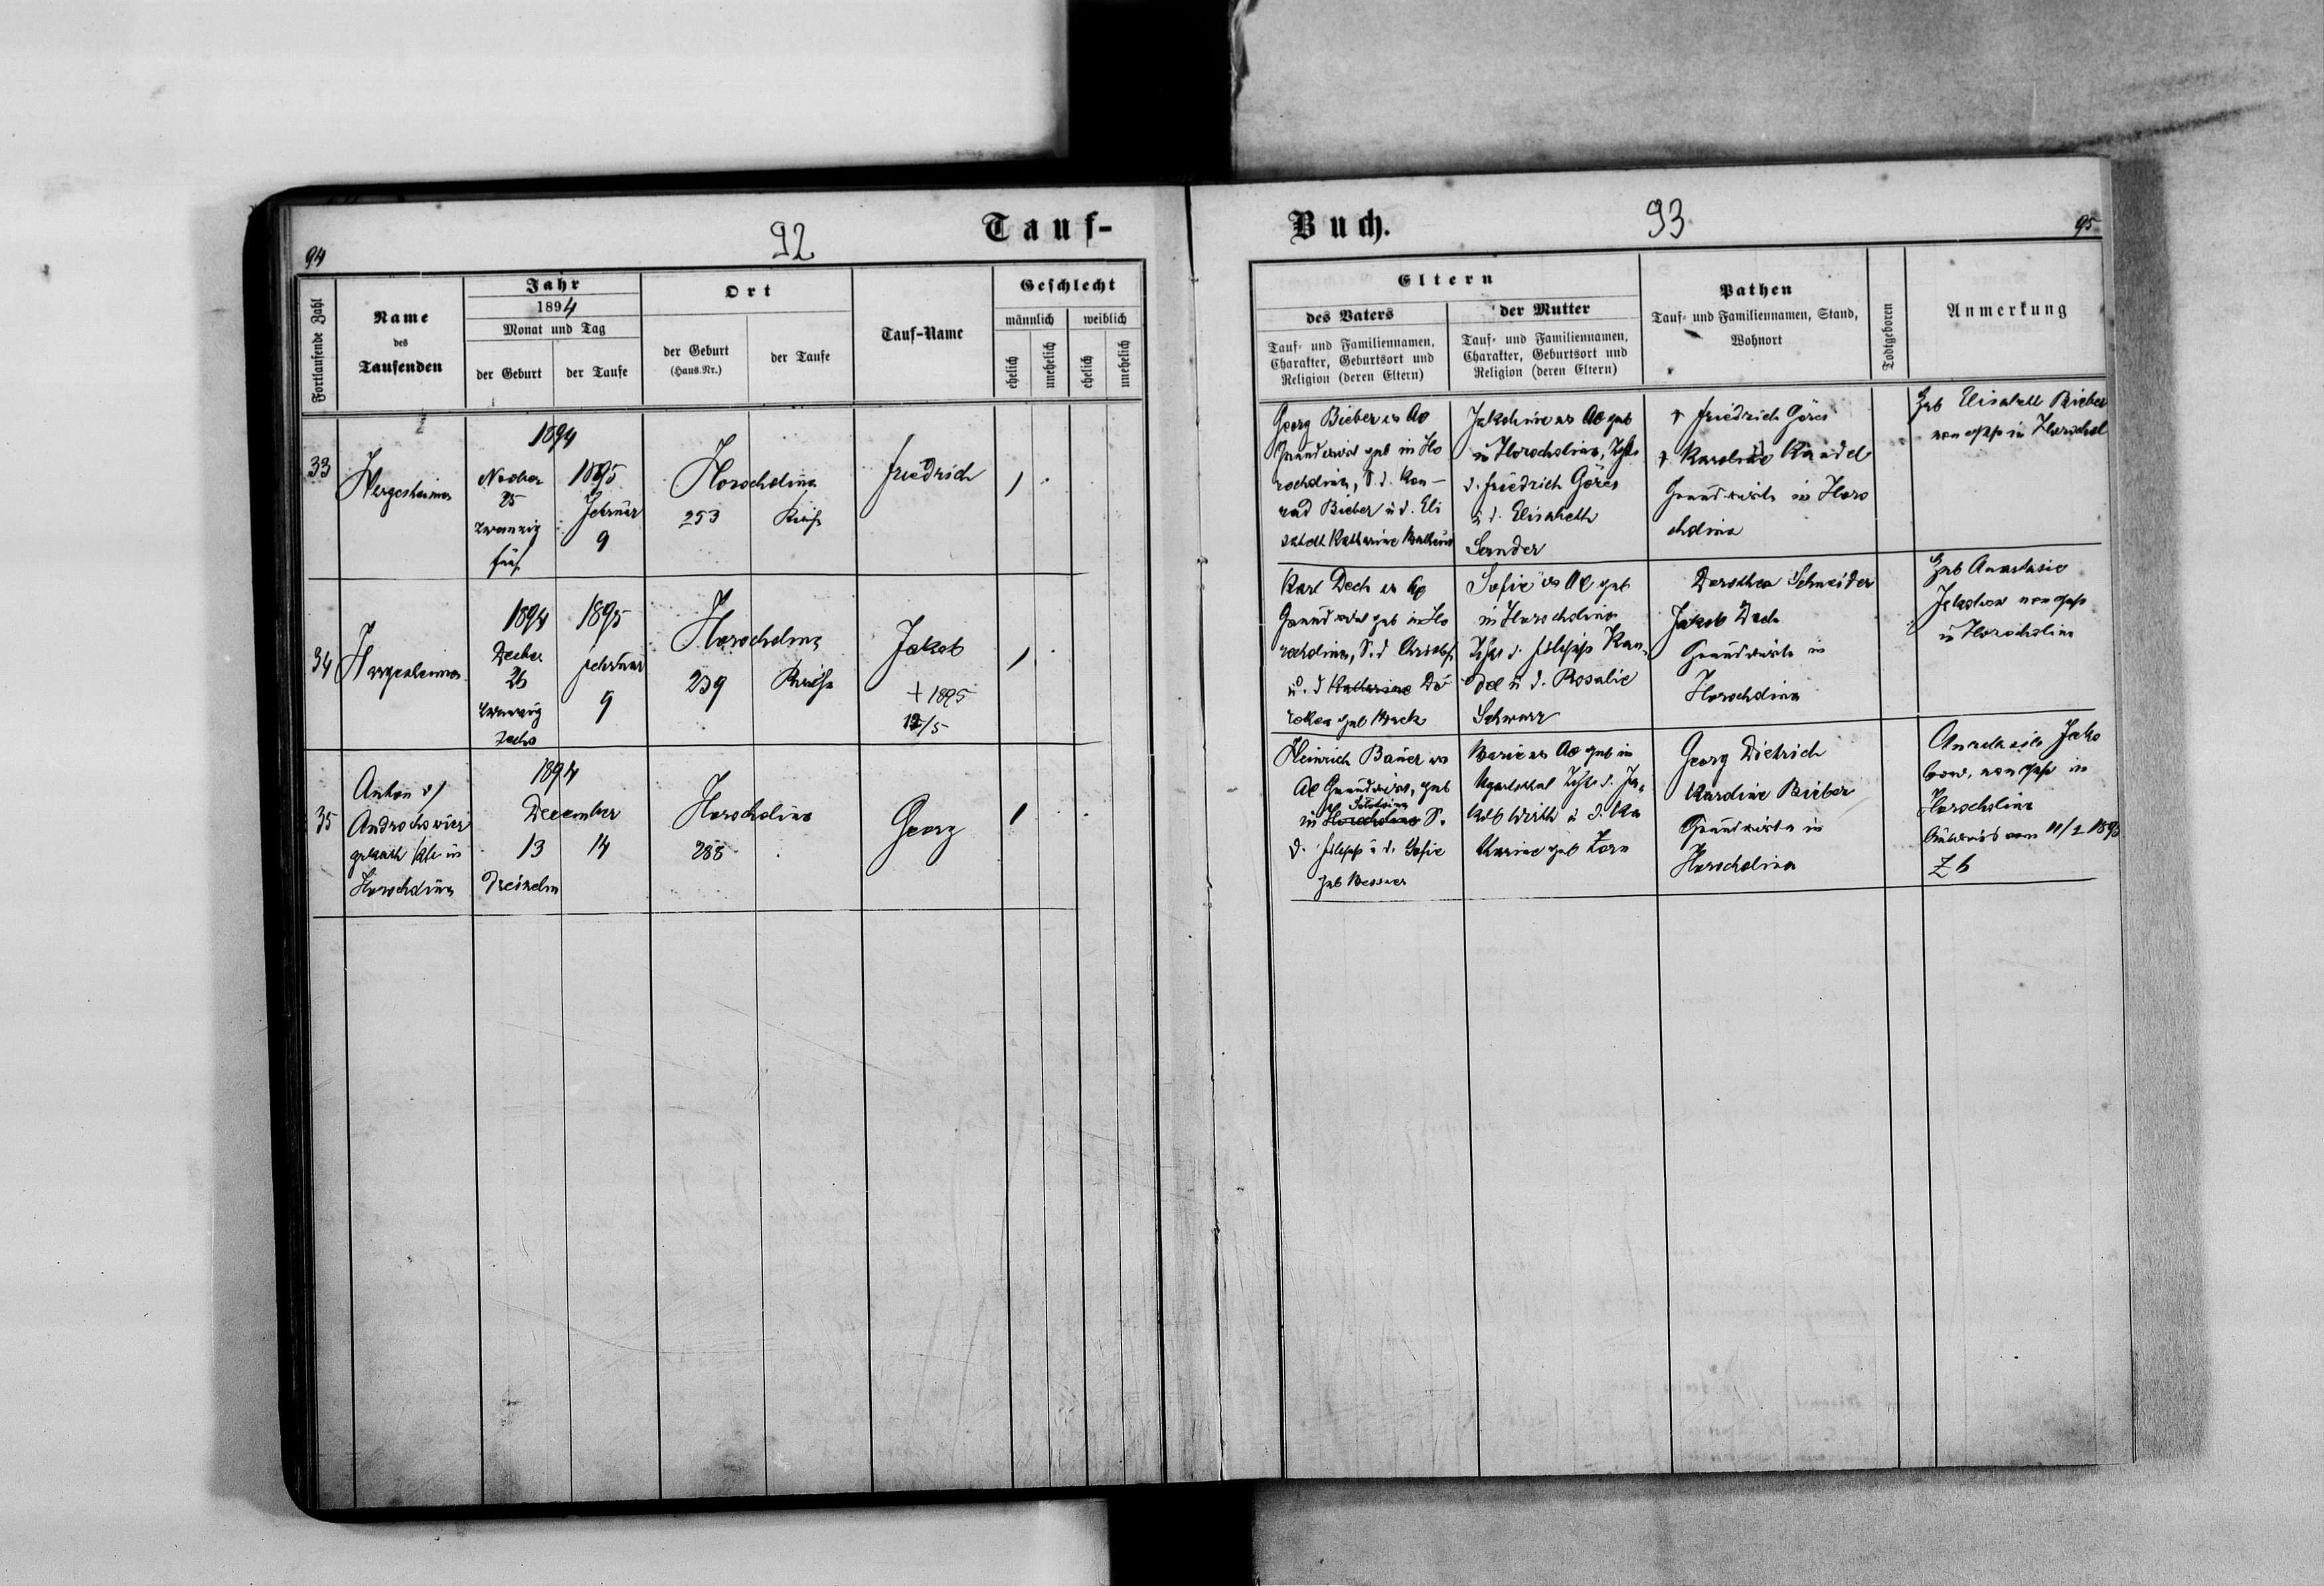 94
92
Tauf-
Fortlaufende Zahl
Name
des
Taufenden
Jahr
1894
Monat und Tag
der Geburt
der Taufe
Ort
der Geburt
(Haus.Nr.)
der Taufe
Tauf-Name
Geschlecht
männlich
weiblich
ehelich
unehelich
ehelich
unehelich
33
Hergesheimer
1894
25
zwanzig
fünf
1895
Februar
9
Horocholina
253
Friedrich
34
Hergesheimer
1894
Decber
26
zwanzig
sechs
1895
Februar
9
Horocholina
239
Jakob
+ 1895
12/5
35
Anton v/
Androchowicz
in
Horocholina
1894
December
13
14
dreizehn
Horocholina
288
Georg
Buch.
93
95
Eltern
des Vaters
Tauf- und Familiennamen,
Charakter, Geburtsort und
Religion (deren Eltern)
der Mutter
Tauf- und Familiennamen,
Charakter, Geburtsort und
Religion (deren Eltern)
Pathen
Tauf- und Familiennamen, Stand,
Wohnort
Todtgeboren
Anmerkung
Georg Bieber ev AC
Grundwirt geb in Ho
rocholina, S. d. Kon-
rad Bieber u d. Eli
sabeth Katharine
ev AC geb
in Horocholina, Tcht.
d. Friedrich Göres
u d. Elisabeth
Sander
+ Friedrich Göres
+ Karoline Kandel
Grundwirte in Horo
cholina
Elisabeth Bieber
in Horochol
Karl Dech ev AC
Grundwirt geb in Ho
rocholina, S. d
u. d Katharine Do
rothea geb
Sofie ev AC geb
in Horocholina
d. Filipp Kan-
del u d. Rosalie
Schwarz
Dorothea Schneider
Jakob Dech
Grundwirte in
Horocholina
Anastasie
in Horocholina
Heinrich Bauer ev
AC Grundwirt, geb
in Horocholina S.
d. Filipp u d. Sofie
geb
Marie ev AC geb in
d. Ja-
kob Wirth u d. Ka
tharine geb Zorn
Georg Dietrich
Karoline Bieber
Grundwirte in
Horocholina
Anastasie Jako
bow, in
Horocholina
vom 11/2 1895
Z 6